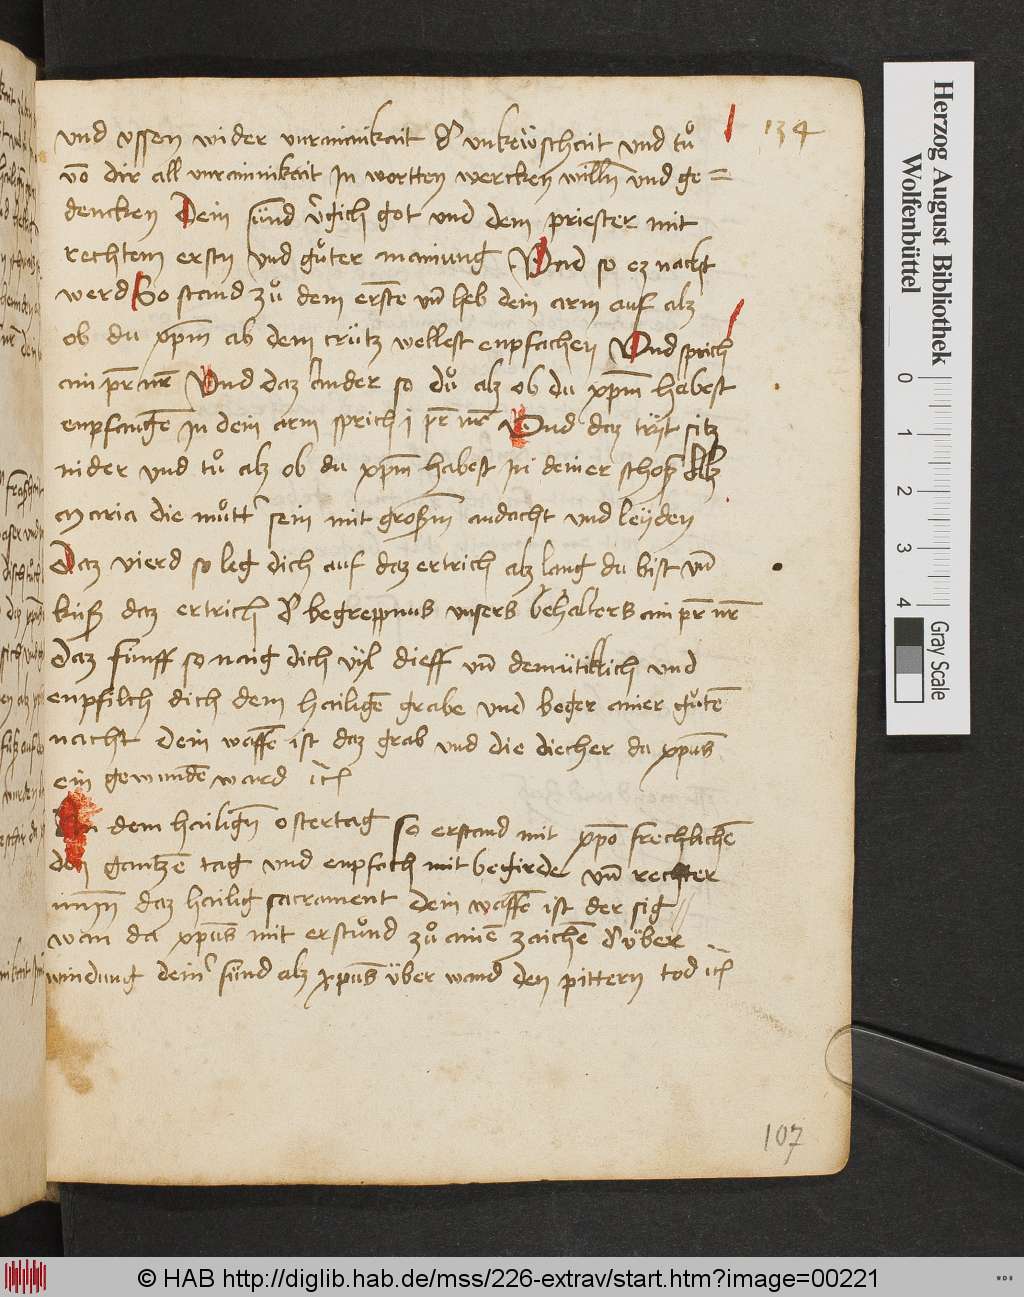 134
vnd vssen wider vnrainikait d' vnkewschait vnd tuͦ
vō dir all vnrainikait in wortten wercken willn̄ vnd ge=
dencken Dein sünd v̄gich got vnd dem priester mit
rechtem ernstn vnd guͦter mainung Vnd so ez nacht
werd So stand zuͦ dem erste vn̄ heb dein arm auf alz
ob du xpm̄ ab dem crütz wellest enpfachen Vnd sprich
ain pr̄ nr̄ Vnd daz ander so duͦ alz ob du xpm̄ habest
enpfangē in dein arm sprich j pr̄ nr̄ Vnd daz tryt sitz
nider vnd tuͦ alz ob du xpm̄ habest in deiner schoß Alz
Maria die muͦtt' sein mit großm̄ andacht vnd leyden
Daz vierd so leg dich auf daz ertrich alz lang du bist vn̄
küß daz ertrich d' begreppnus vnsers behalters ain pr̄ nr̄
Daz fünff so naig dich vyl dieff vn̄ demütiklich vnd
enpfilch dich dem hailigē grabe vnd beger ainer guͦten̄
nacht Dein waffē ist daz grab vnd die diecher da xpus̄
ein gewundē ward
An dem hailign̄ ostertag so erstand mit xpō frechlichē
den gantzē tag vnd enpfach mit begirde vn̄ rechter
daz hailig sacrament dein waffē ist der sig
wan da xpus̄ mit erstuͦnd zuͦ ainē zaichē d' über
windung dein' sünd alz xpus̄ über wand den pittern tod
107
Herzog August Bibliothek
Wolfenbüttel
0 1 2 3 4
Gray Scale
© HAB http://diglib.hab.de/mss/226-extrav/start.htm?image=00221